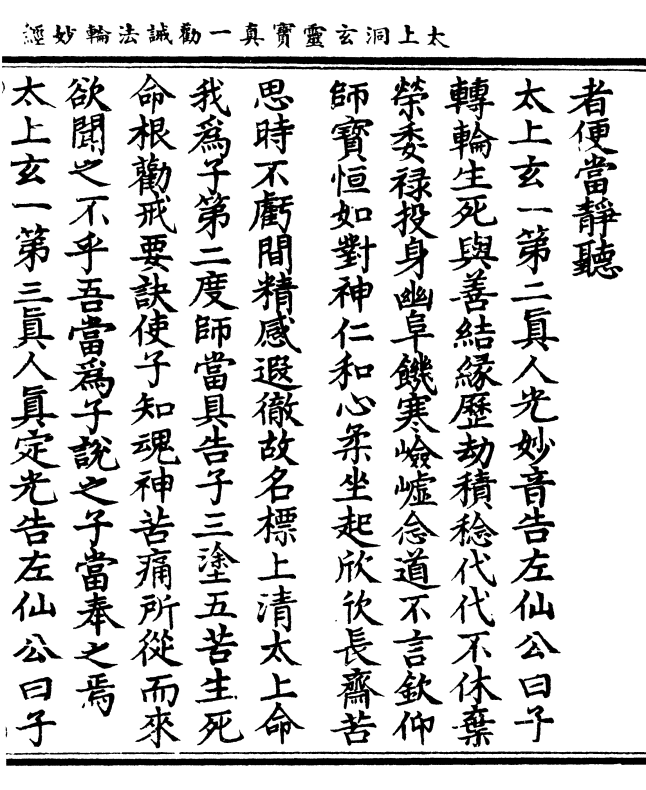 太上洞玄靈寶真一勸誡法輪妙經
者便當靜聽
太上玄一第二眞人光妙音告左仙公曰子
轉輪生死與善結緣歷劫積稔代代不休棄
榮委禄投身幽阜饑寒嶮嶟念道不言欽仰
師寶恒如對神仁和心柔坐起欣欣長齋苦
思時不虧間精感遐徹故名標上清太上命
我爲子第二度師當具告子三塗五苦生死
命根勸戒要訣使子知魂神苦痛所從而來
欲聞之不乎吾當爲子說之子當奉之焉
太上玄一第三眞人眞定光告左仙公曰子